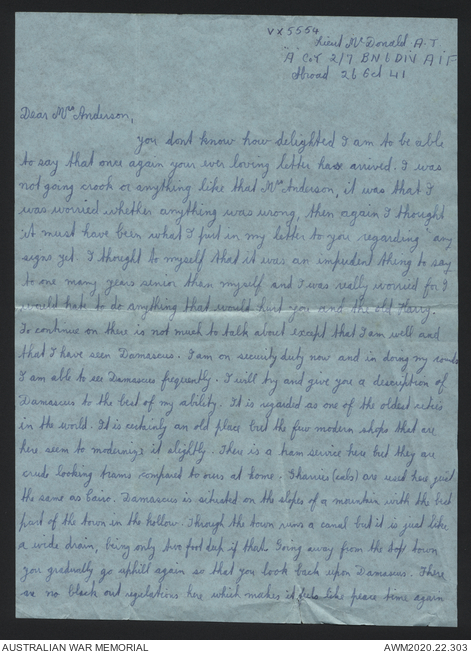 VX5554
Lieut McDonald A.T
"A" Coy 2/7 BN 6 DIV A I F
Abroad 26 Oct 41
Dear Mrs Anderson,
you dont know how delighted I am to be able
to say that once again your ever loving letter has arrived. I was
not going crook or anything like that Mrs Anderson, it was that I
was worried whether anything was wrong, then again I thought
it must have been what I put in my letter to you regarding "any
signs yet. I thought to myself that it was an impudent thing to say
to one many years senior than myself and I was really worried for I
would hate to do anything that would hurt you and the old Harry.
To continue on there is not much to talk about except that I am well and
that I have seen Damascus. I am on security duty now and in doing my rounds
I am able to see Damascus frequently. I will try and give you a description of
Damascus to the best of my ability. It is regarded as one of the oldest cities
in the world. It is certainly an old place but the few modern shops that are
here seem to modernize it slightly. There is a tram service here but they are
crude looking trams compared to ours at home. Gharries (cabs) are used here just
the same as Cairo. Damascus is situated on the slopes of a mountain with the best
part of the town in the hollow. Through the town runs a canal but it is just like
a wide drain, being only two foot deep if that. Going away from the town
you gradually go uphill again so that you look back upon Damascus. There
are no black out regulations here which makes it like peace time again
AUSTRALIAN WAR MEMORIAL
AWM2020.22.303